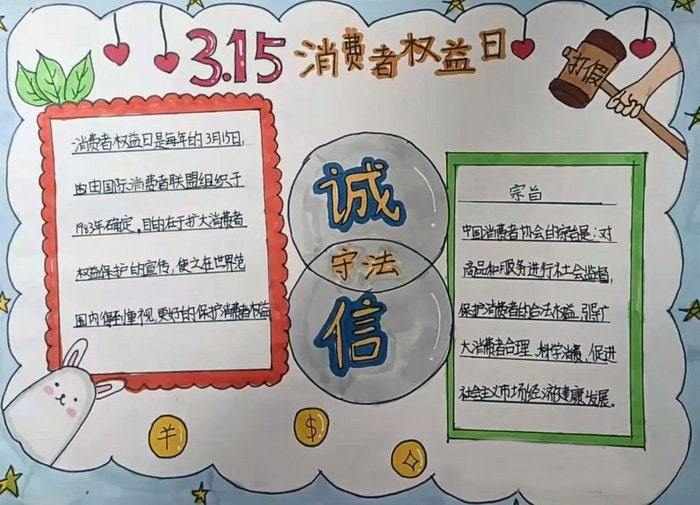 3.15 消费者权益日
打假
消费者权益日是每年的3月15日,
由由国际消费者联盟组织于
1983年确定,目的在于扩大消费者
权益保护的宣传,使之在世界范
围内得到重视,更好的保护消费者权益
诚
守法
信
宗旨
中国消费者协会的宗旨是:对
商品和服务进行社会监督,
保护消费者的合法权益,引导广
大消费者合理、科学消费,促进
社会主义市场经济健康发展。
¥
$